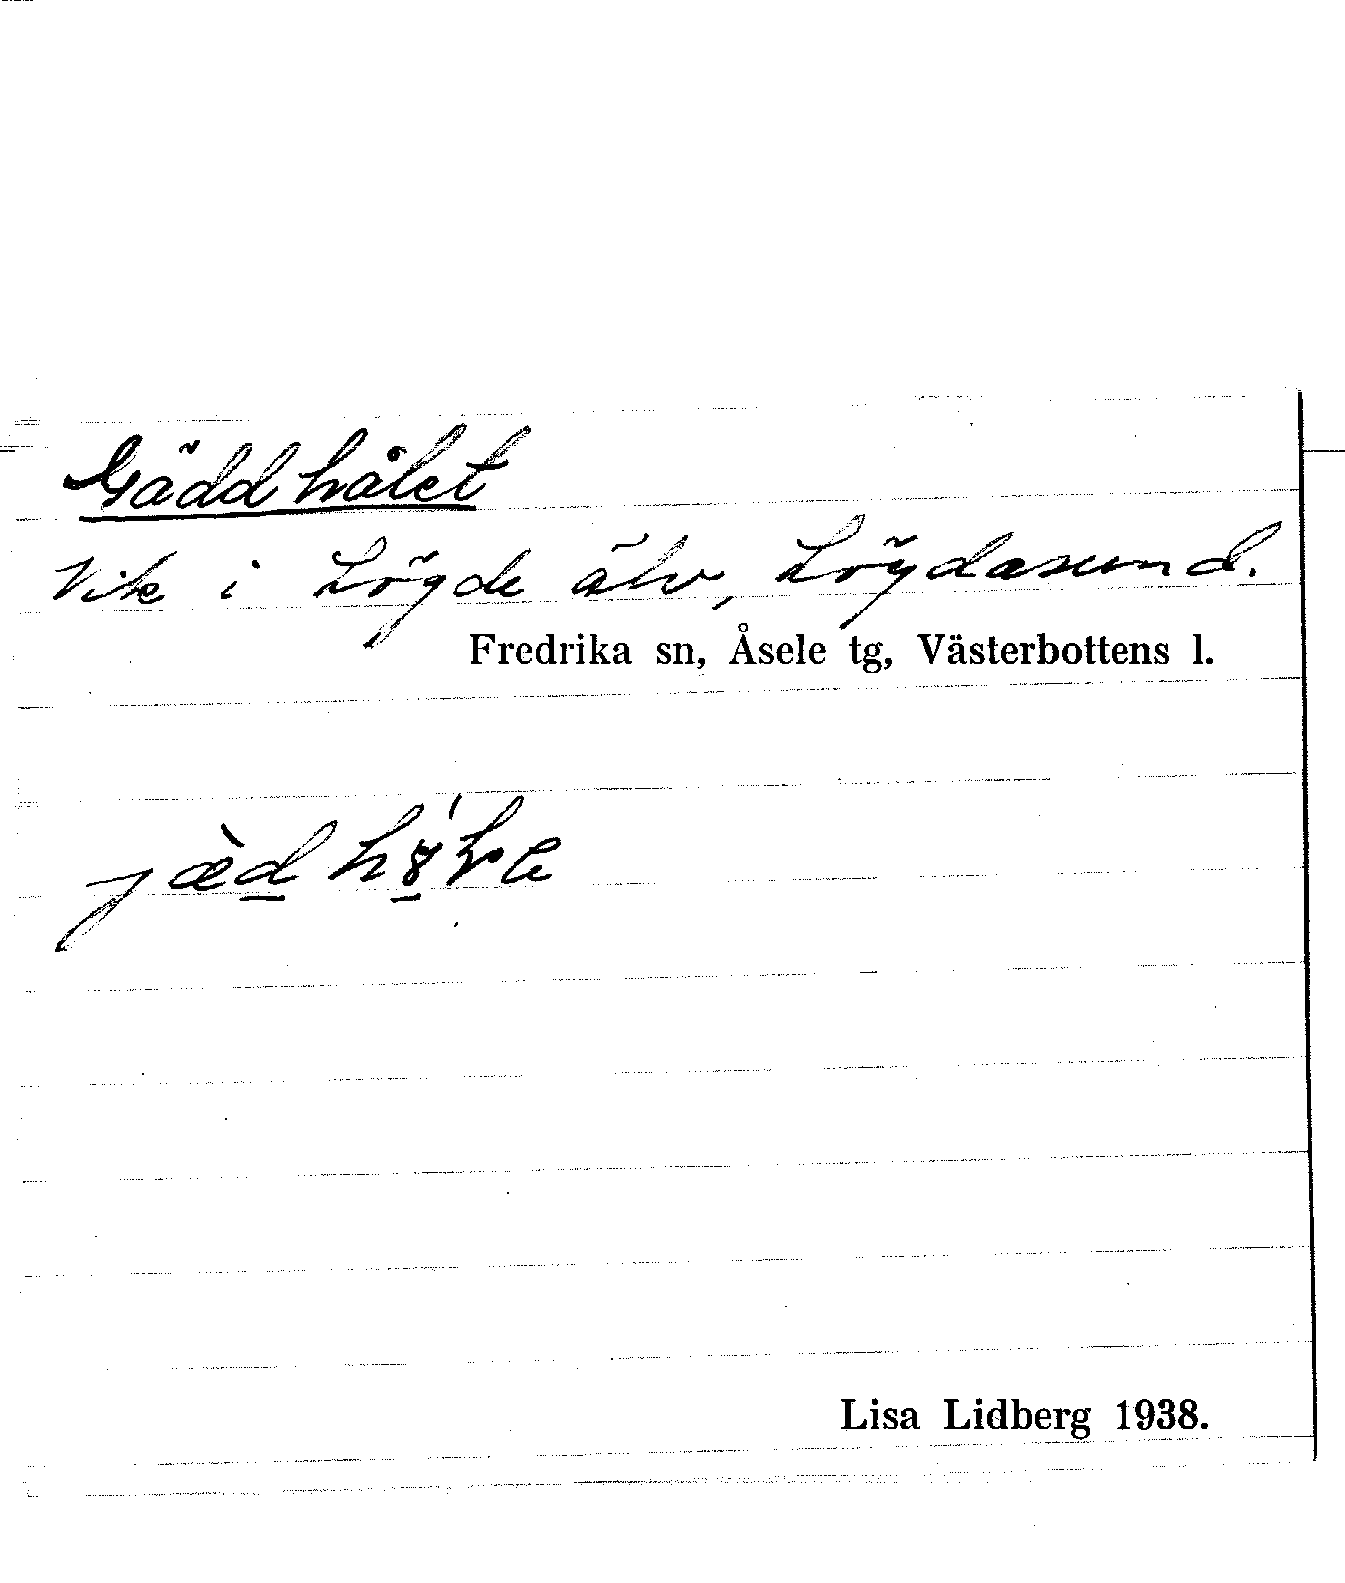 Gäddhålet
Vik i Lögde älv, Lögdasund.
Fredrika sn, Åsele tg, Västerbottens l.
Lisa Lidberg 1938.